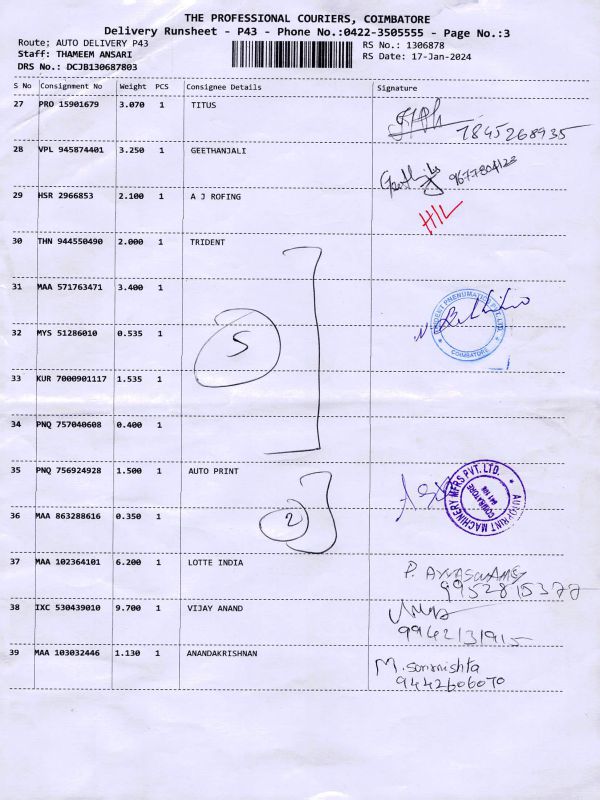 THE PROFESSIONAL COURIERS, COIMBATORE
Delivery Runsheet - P43 - Phone No.:0422-3505555 - Page No.:3
Route; AUTO DELIVERY P43
Staff: THAMEEM ANSARI
DRS No.: DCJB130687803
RS No.: 1306878
RS Date: 17-Jan-2024
S No Consignment No Weight PCS Consignee Details Signature
27 PRO 15901679 3.070 1 TITUS
7845268935
28 VPL 945874401 3.250 1 GEETHANJALI
9677804123
29 HSR 2966853 2.100 1 A J ROFING
HIL
30 THN 944550490 2.000 1 TRIDENT
31 MAA 571763471 3.400 1
TRIDENT PNEUMATICS PVT.LTD.
COIMBATORE
32 MYS 51286010 0.535 1
5
33 KUR 7000901117 1.535 1
34 PNQ 757040608 0.400 1
35 PNQ 756924928 1.500 1 AUTO PRINT
AUTOPRINT MACHINERY MFRS PVT. LTD.
COIMBATORE
36 MAA 863288616 0.350 1
2
37 MAA 102364101 6.200 1 LOTTE INDIA
9952815377
38 IXC 530439010 9.700 1 VIJAY ANAND
9942131915
39 MAA 103032446 1.130 1 ANANDAKRISHNAN
M. Sormishta
9442606070